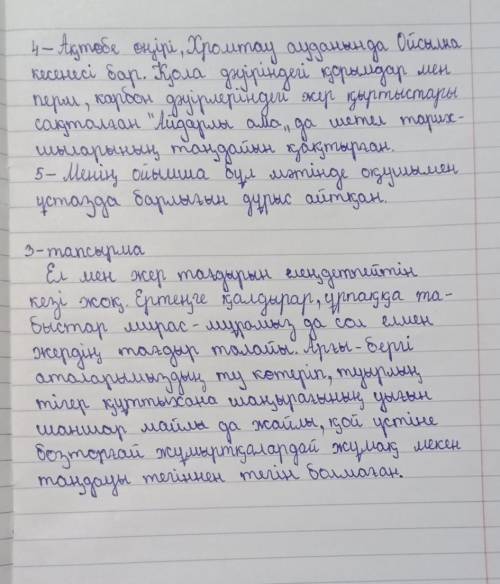 4 – Ақтөбе өңірі, Хромтау ауданында Ойсылқа
кесенесі бар. Қола дәуіріндегі қорымдар мен
перм, карбон дәуірлеріндегі жер қыртыстары
сақталған "Айдарлы аша„ да шетел тарих-
шыларының таңдайын қақтырған.
5 – Менің ойымша бұл мәтінде оқушымен
ұстазда барлығын дұрыс айтқан.
3 – тапсырма
Ел мен жер тағдырын елеңдетпейтін
кезі жоқ. Ертеңге қалдырар, ұрпаққа та-
быстар мирас-мұрамыз да сол елмен
жердің тағдыр талайы. Арғы-бергі
аталарымыздың ту көтеріп, туырлық
тігер құттыхана шаңырағының уығын
шаншар майлы да жайлы, қой үстіне
бозторғай жұмыртқалардай жұмақ мекен
таңдауы тегіннен тегін болмаған.